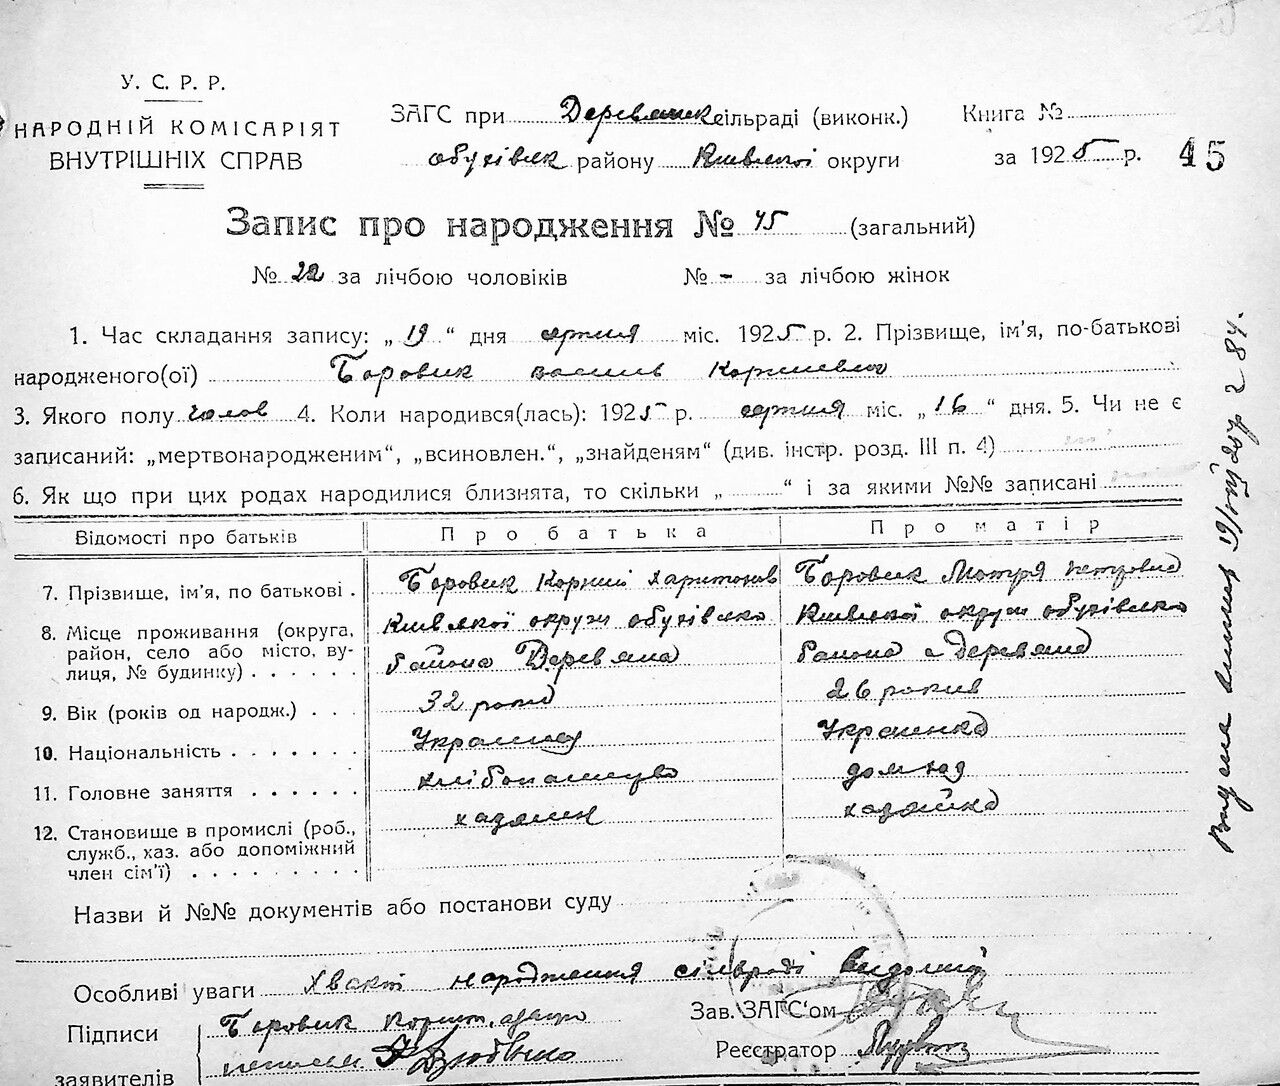 У. С. Р. Р.
НАРОДНІЙ КОМІСАРІЯТ
ВНУТРІШНІХ СПРАВ
ЗАГС при Деревянск сільраді (виконк.)
обухівск району Киівскоі округи
Книга №
за 1925 р.
45
Запис про народження № 45 (загальний)
№ 22 за лічбою чоловіків № - за лічбою жінок
1. Час складання запису: „ 19 “ дня серпня міс. 1925 р. 2. Прізвище, ім’я, по-батькові
народженого(ої) Боровик василь Корниевич
3. Якого полу чолов 4. Коли народився(лась): 1925 р. серпня міс. „ 16 “ дня. 5. Чи не є
записаний: „мертвонародженим“, „всиновлен.“, „знайденям“ (див. інстр. розд. III п. 4)
6. Як що при цих родах народилися близнята, то скільки „ “ і за якими №№ записані
Відомості про батьків Про батька Про матір
7. Прізвище, ім’я, по батькові . Боровик Корний Харитонов Боровик Мотря петровна
8. Місце проживання (округа, район, село або місто, вулиця, № будинку) . . . . . . Киівскоі округи обухівско Киівскоі округи обухівско
района Дерев’яна района с дерев’яна
9. Вік (років од народж.) . . . 32 роки 26 рокив
10. Національність . . . . . . . Украинец Украинка
11. Головне заняття . . . . . . хлібопашцво
12. Становище в промислі (роб., служб., хаз. або допоміжний член сім’ї) . . . . . . . . . хазяин хазяйка
Назви й №№ документів або постанови суду
Особливі уваги Хвакт народження сільраді видомий
Підписи
заявителів
Боровик Корни
Зав. ЗАГС‘ом
Реєстратор
Видана 84.